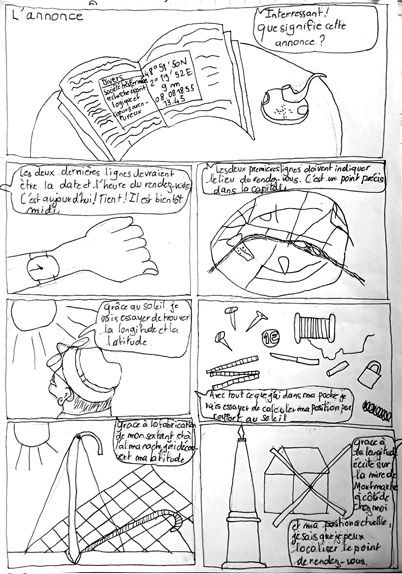 L'annonce
Interressant!
Que signifie cette
annonce ?
Divers
logique et
48° 51' 50N
2° 19' 52E
9 m
08.08.1855
13.45
Les deux dernières lignes devraient
être la date et l'heure du rendez-vous.
C'est aujourd'hui! Tient! Il est bientôt
midi.
Les deux premières lignes doivent indiquer
le lieu du rendez-vous. C'est un point précis
dans la capitale.
Grâce au soleil je
vais essayer de trouver
la longitude et la
latitude
Avec tout ce que j'ai dans ma poche je
vais essayer de calculer ma position par
rapport au soleil
Grâce à la fabrication
de mon sextant et à
ma latitude
Grâce à
la longitude
écrite sur
la mire de
Montmartre
à côté de
chez moi
et ma position actuelle,
je sais que je peux
localiser le point
de rendez-vous.